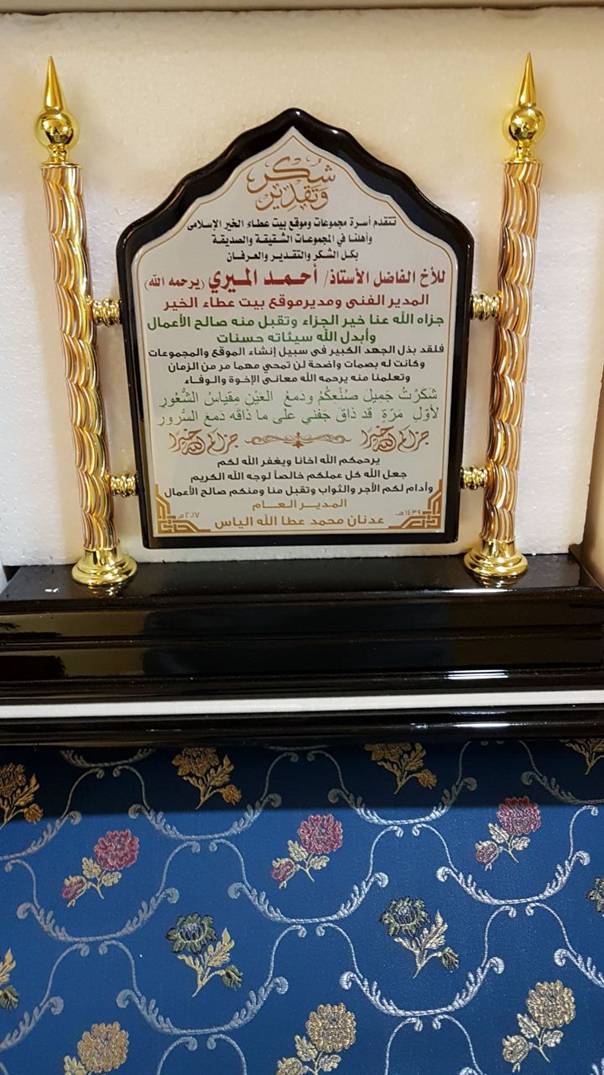 شكر
وتقدير
تتقدم أسرة مجموعات وموقع بيت عطاء الخير الإسلامى
وأهلنا في المجموعات الشقيقة والصديقة
بكل الشكر والتقدير والعرفان
للأخ الفاضل الأستاذ/ أحمد الميري (يرحمه الله)
المدير الفنى ومديرموقع بيت عطاء الخير
جزاه الله عنا خير الجزاء وتقبل منه صالح الأعمال
وأبدل الله سيئاته حسنات
فلقد بذل الجهد الكبير فى سبيل إنشاء الموقع والمجموعات
وكانت له بصمات واضحة لن تمحي مهما مر من الزمان
وتعلمنا منه يرحمه الله معانى الإخوة والوفاء
شكرتُ جميل صنعكم ودمع العين مقياس الشعور
لأول مرة قد ذاق جفني على ما ذاقه دمع السرور
جزاكم الله خيرا جزاكم الله خيرا
يرحمكم الله اخانا ويغفر الله لكم
جعل الله كل عملكم خالصاً لوجه الله الكريم
وأدام لكم الأجر والثواب وتقبل منا ومنكم صالح الأعمال
المدير العام
عدنان محمد عطا الله الياس
١٤٣٩هـ